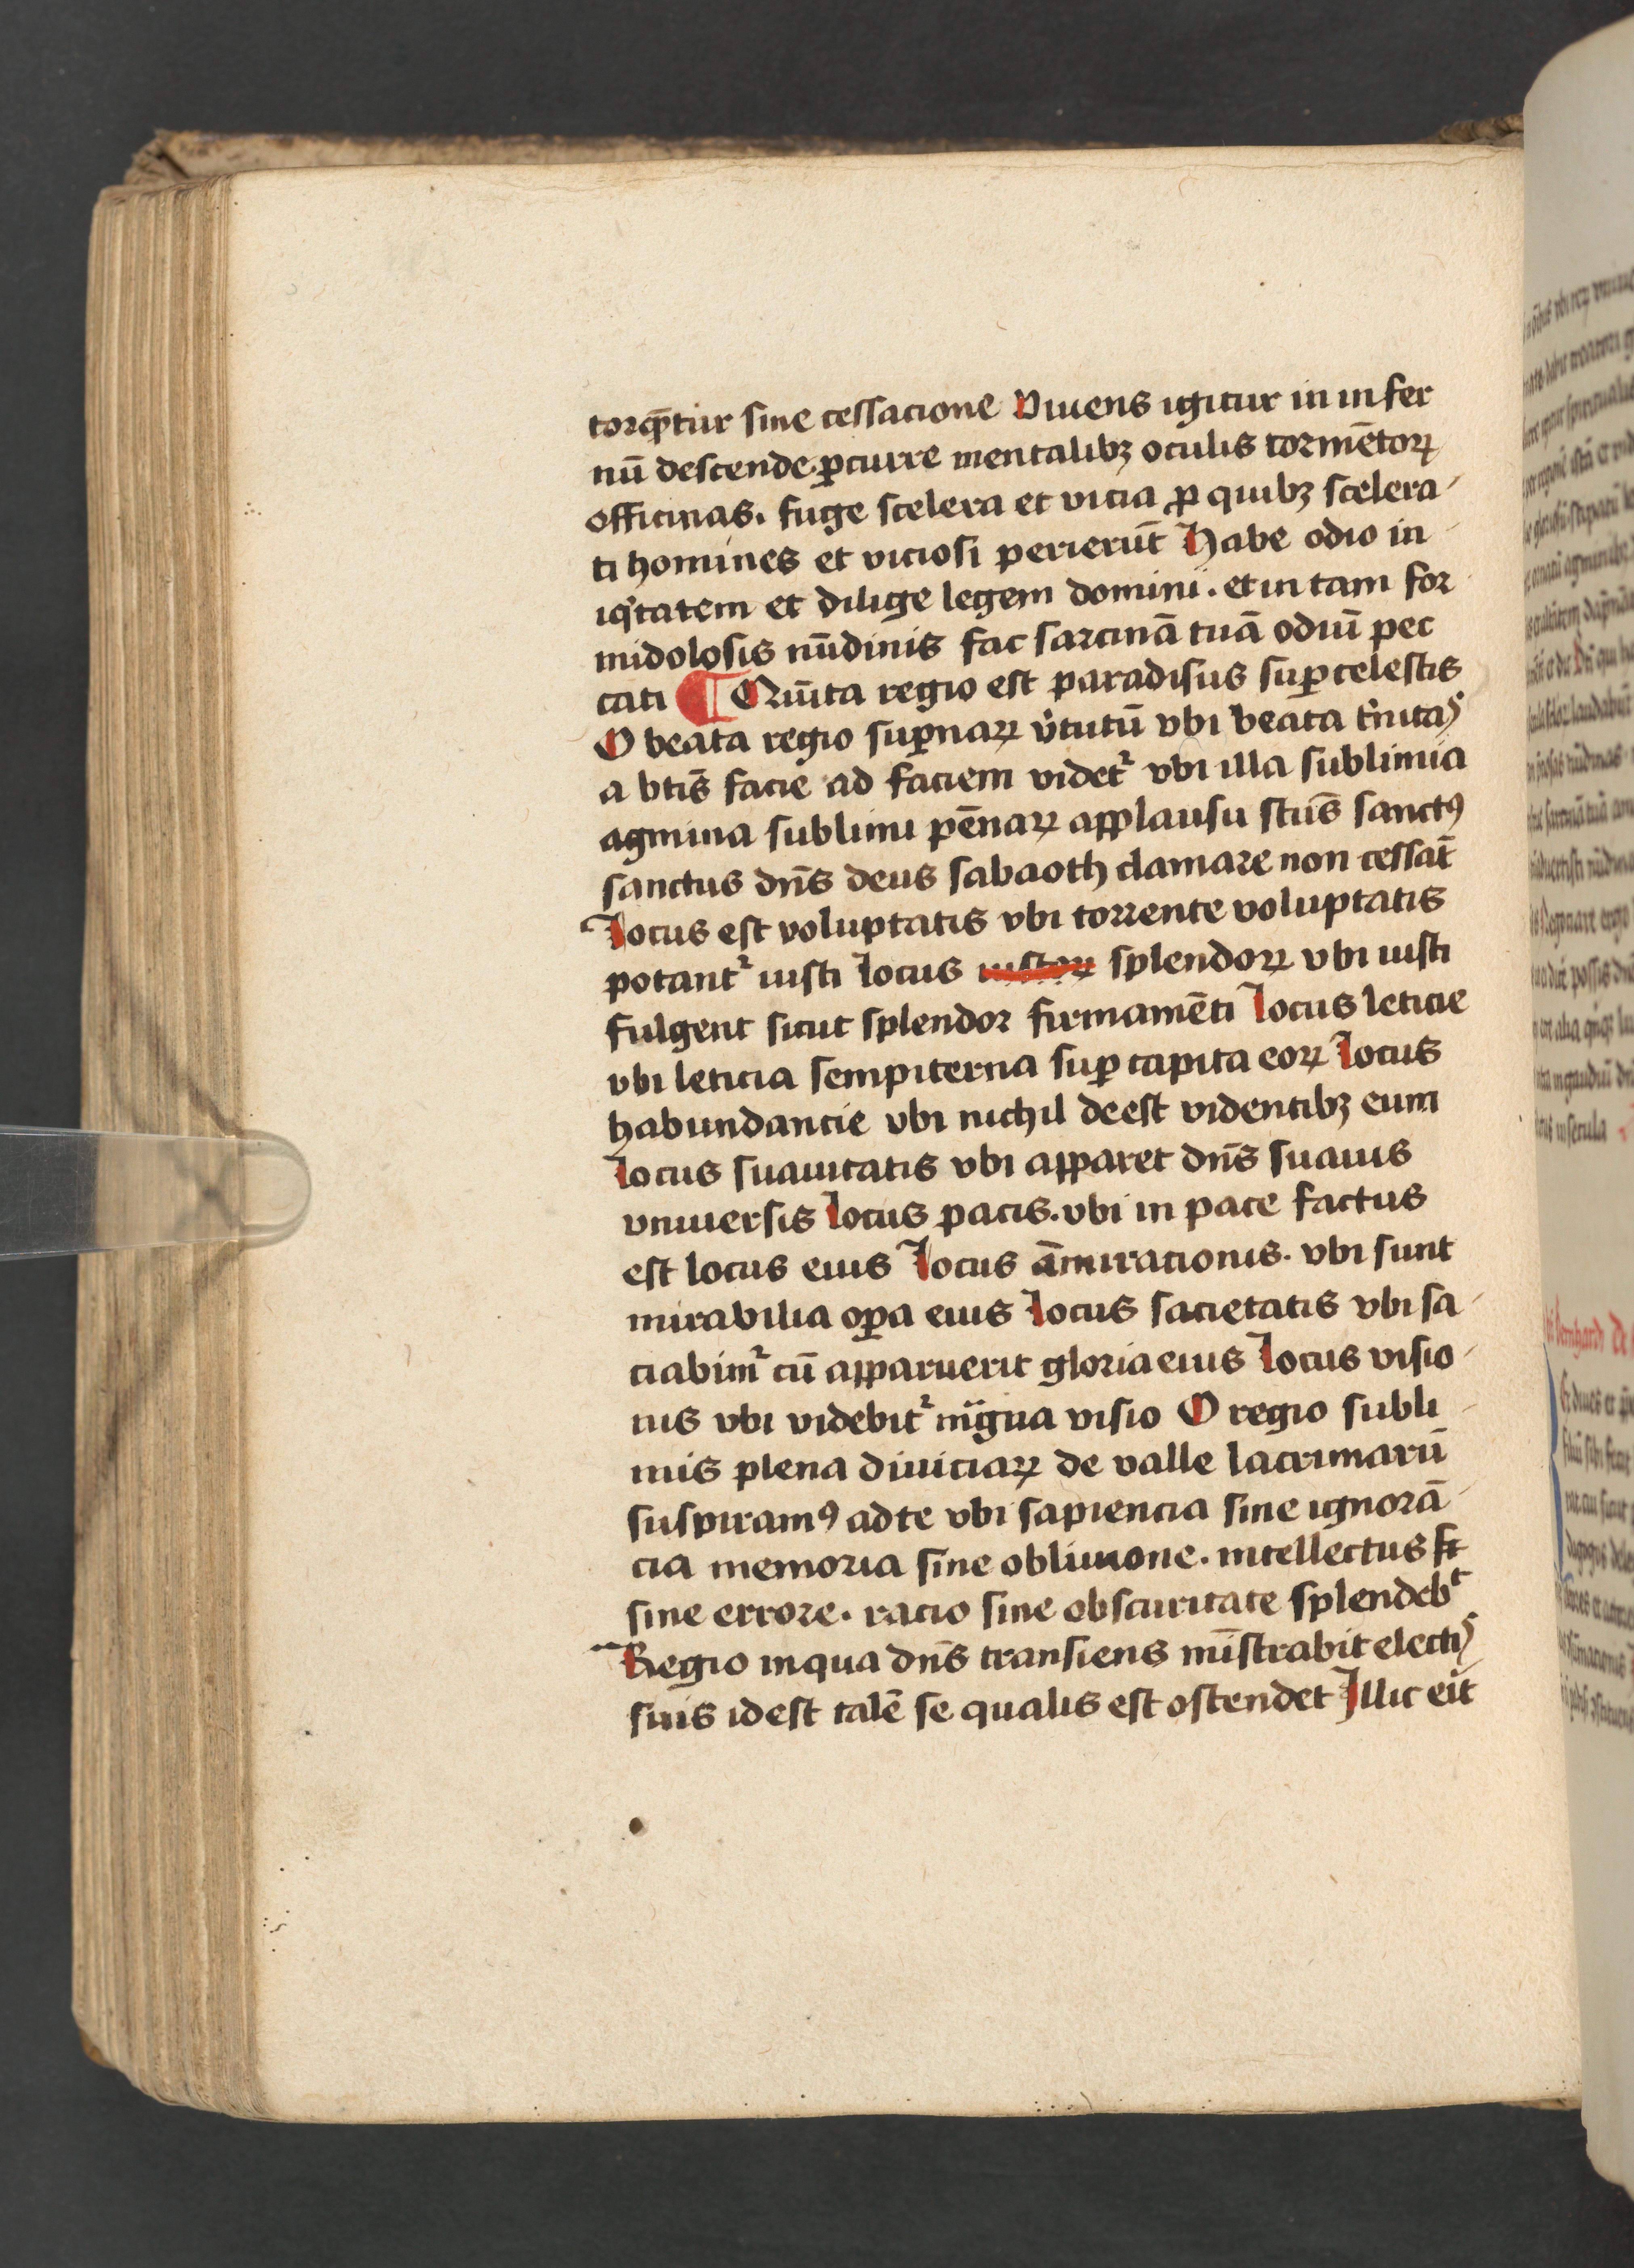 torq̄ntur sine cessacione Viuens igitur in infer
nū descende. ꝑcurre mentalibꝫ oculis tormētoꝝ
officinas. fuge scelera et vicia ꝓ quibꝫ scelera
ti homines et viciosi perierūt Habe odio in
iqͥtatem et dilige legem domini. et in tam for
midolosis nūdinis fac sarcinā tuā odiū pec
cati ¶ Quīta regio est paradisus suꝑcelestis
O beata regio suꝑnaꝝ v̓tutū vbi beata tͥnitaꝭ
a btīs facie ad faciem videtᷣ vbi illa sublimia
agmina sublimi pēnaꝝ applausu sctūs sanctꝰ
sanctus dn̄s deus sabaoth clamare non cessāt
Locus est voluptatis vbi torrente voluptatis
potantᷣ iusti Locus iustoꝝ splendoꝝ vbi iusti
fulgent sicut splendor firmamēti Locus leticie
vbi leticia sempiterna suꝑ capita eoꝝ Locus
habundantie vbi nichil deest videntibꝫ eum
Locus suauitatis vbi apparet dn̄s suauis
vniuersis Locus pacis. vbi in pace factus
est locus eius Locus āmirationis. vbi sunt
mirabilia oꝑa eius Locus sacietatis vbi sa
ciabimᷣ cū apparuerit gloria eius Locus visio
nis vbi videbitᷣ mīgna visio O regio subli
mis plena diuiciaꝝ de valle lacrimarū
suspiramꝰ ad te vbi sapiencia sine ignorā
cia memoria sine obliuione. intellectus
sine errore. racio sine obscuritate splendebᵗ
Regio in qua dn̄s transiens mīstrabit electiꝭ
suis id est talē se qualis est ostendet Illic eit